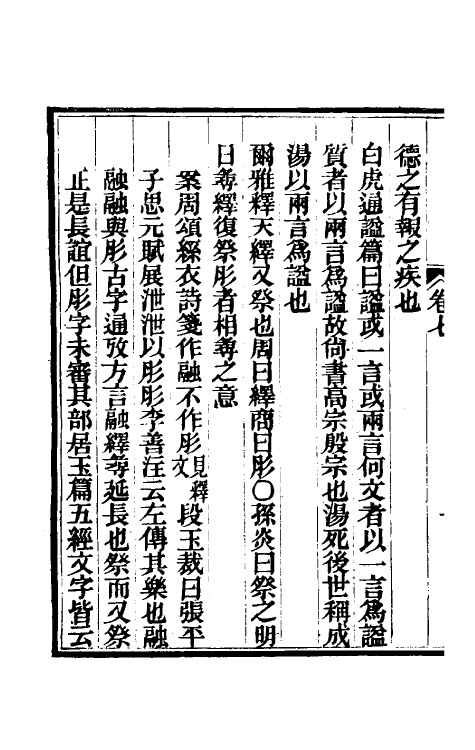 卷七
德之有報之疾也
白虎通諡篇曰諡或一言或兩言何文者以一言爲諡
質者以兩言爲諡故尙書高宗殷宗也湯死後世稱成
湯以兩言爲諡也
爾雅釋天繹又祭也周曰繹商曰肜〇孫炎曰祭之明
日尋繹復祭肜者相尋之意
案周頌絲衣詩箋作融不作肜見釋文段玉裁曰張平
子思元賦展泄泄以肜肜李善注云左傳其樂也融
融融與肜古字通攷方言融繹尋延長也祭而又祭
正是長誼但肜字未審其部居玉篇五經文字皆云